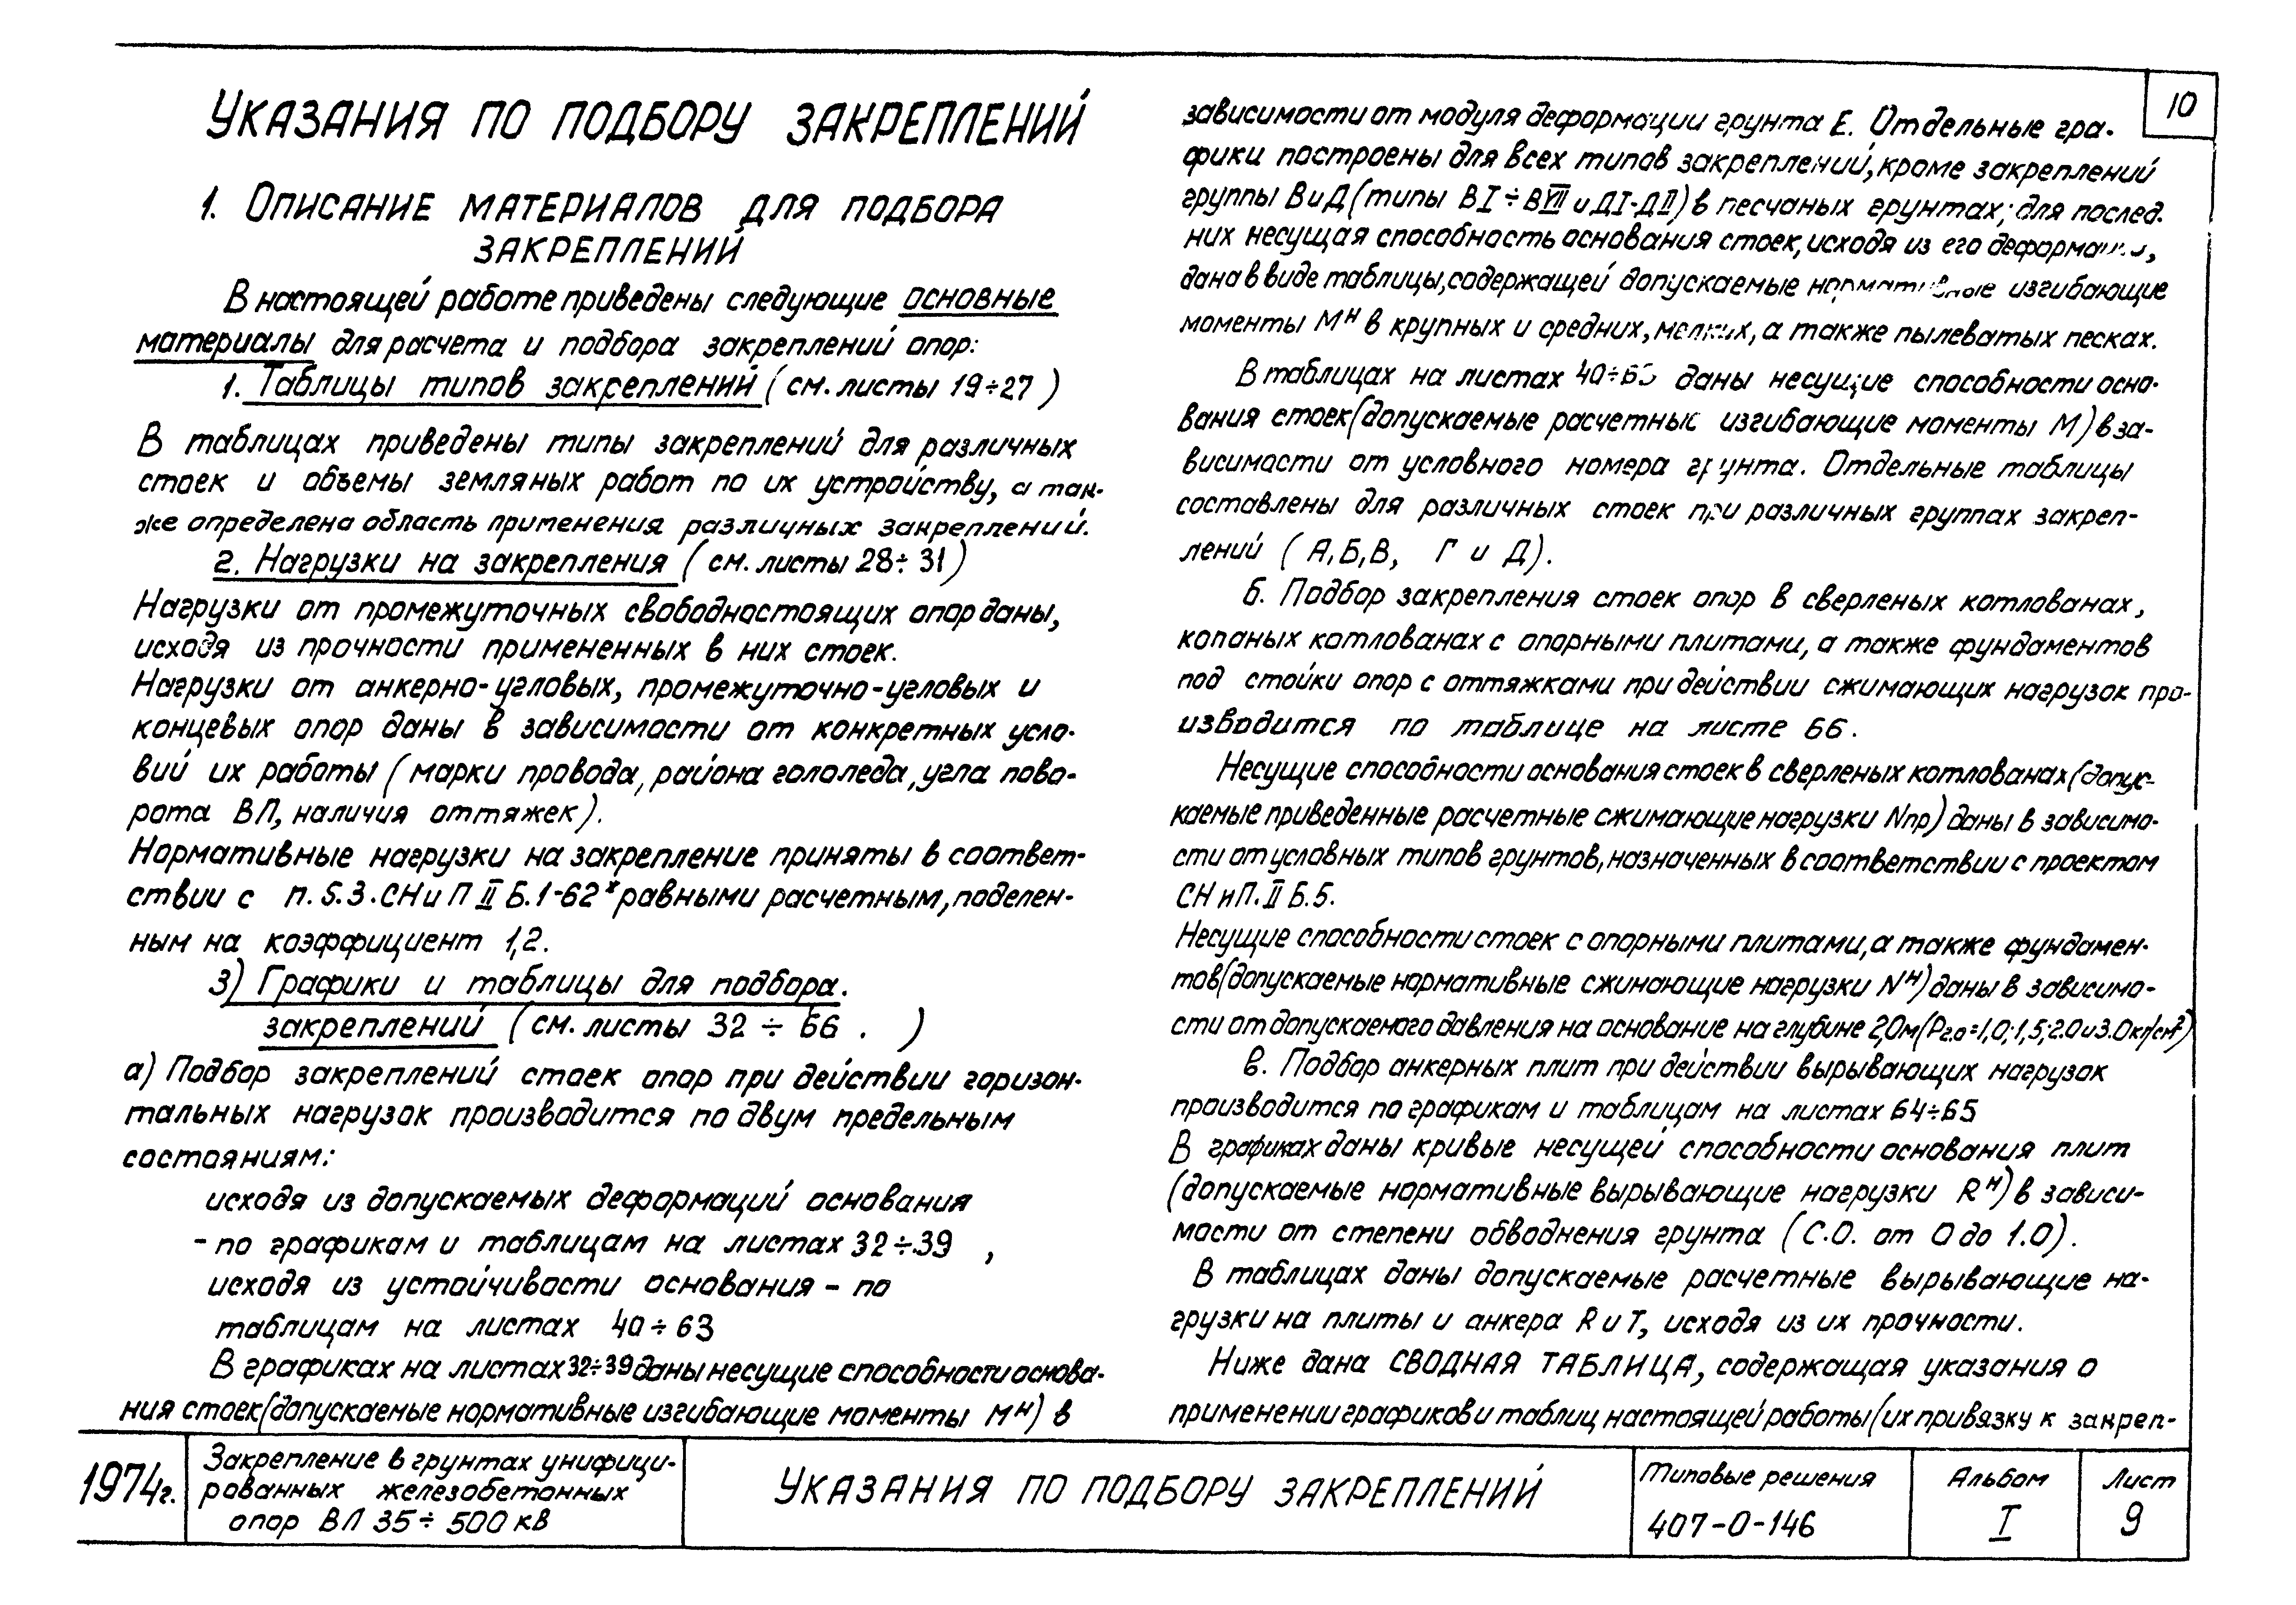 УКАЗАНИЯ ПО ПОДБОРУ ЗАКРЕПЛЕНИЙ
1. ОПИСАНИЕ МАТЕРИАЛОВ ДЛЯ ПОДБОРА
ЗАКРЕПЛЕНИЙ
В настоящей работе приведены следующие основные
материалы для расчета и подбора закреплений опор:
1. Таблицы типов закреплений (см. листы 19÷27)
В таблицах приведены типы закреплений для различных
стоек и объемы земляных работ по их устройству, а так-
же определена область применения различных закреплений.
2. Нагрузки на закрепления (см. листы 28÷31)
Нагрузки от промежуточных свободностоящих опор даны,
исходя из прочности примененных в них стоек.
Нагрузки от анкерно-угловых, промежуточно-угловых и
концевых опор даны в зависимости от конкретных усло-
вий их работы (марки провода, района гололеда, угла пово-
рота ВЛ, наличия оттяжек).
Нормативные нагрузки на закрепление приняты в соответ-
ствии с п. 5.3. СНиП II Б.1-62* равными расчетным, поделен-
ным на коэффициент 1,2.
3) Графики и таблицы для подбора.
закреплений (см. листы 32 ÷ 66 . )
а) Подбор закреплений стоек опор при действии горизон-
тальных нагрузок производится по двум предельным
состояниям:
исходя из допускаемых деформаций основания
- по графикам и таблицам на листах 32÷39 ,
исходя из устойчивости основания - по
таблицам на листах 40÷63
В графиках на листах 32÷39 даны несущие способности основа-
ния стоек (допускаемые нормативные изгибающие моменты Mᴴ) в
10
зависимости от модуля деформации грунта Е. Отдельные гра-
фики построены для всех типов закреплений, кроме закреплений
группы В и Д (типы ВI÷ВVIII и ДI-ДII) в песчаных грунтах; для послед-
них несущая способность основания стоек, исходя из его деформаций,
дана в виде таблицы, содержащей допускаемые нормативные изгибающие
моменты Mᴴ в крупных и средних, мелких, а также пылеватых песках.
В таблицах на листах 40÷63 даны несущие способности осно-
вания стоек (допускаемые расчетные изгибающие моменты М) в за-
висимости от условного номера грунта. Отдельные таблицы
составлены для различных стоек при различных группах закреп-
лений ( А, Б, В, Г и Д).
б. Подбор закрепления стоек опор в сверленых котлованах,
копаных котлованах с опорными плитами, а также фундаментов
под стойки опор с оттяжками при действии сжимающих нагрузок про-
изводится по таблице на листе 66.
Несущие способности основания стоек в сверленых котлованах (допус-
каемые приведенные расчетные сжимающие нагрузки Nпр) даны в зависимо-
сти от условных типов грунтов, назначенных в соответствии с проектом
СНиП. II Б.5.
Несущие способности стоек с опорными плитами, а также фундамен-
тов (допускаемые нормативные сжинающие нагрузки Nᴴ) даны в зависимо-
сти от допускаемого давления на основание на глубине 2,0м (Рг.о=1,0; 1,5; 2.0 и 3.0 кг/см²)
в. Подбор анкерных плит при действии вырывающих нагрузок
производится по графикам и таблицам на листах 64÷65
В графиках даны кривые несущей способности основания плит
(допускаемые нормативные вырывающие нагрузки Rᴴ) в зависи-
мости от степени обводнения грунта (С.О. от 0 до 1.0).
В таблицах даны допускаемые расчетные вырывающие на-
грузки на плиты и анкера R и Т, исходя из их прочности.
Ниже дана СВОДНАЯ ТАБЛИЦА, содержащая указания о
применении графиков и таблиц настоящей работы (их привязку к закреп-
1974г.
Закрепление в грунтах унифици-
рованных железобетонных
опор ВЛ 35÷500 кВ
УКАЗАНИЯ ПО ПОДБОРУ ЗАКРЕПЛЕНИЙ
Типовые решения
407-0-146
Альбом
I
Лист
9